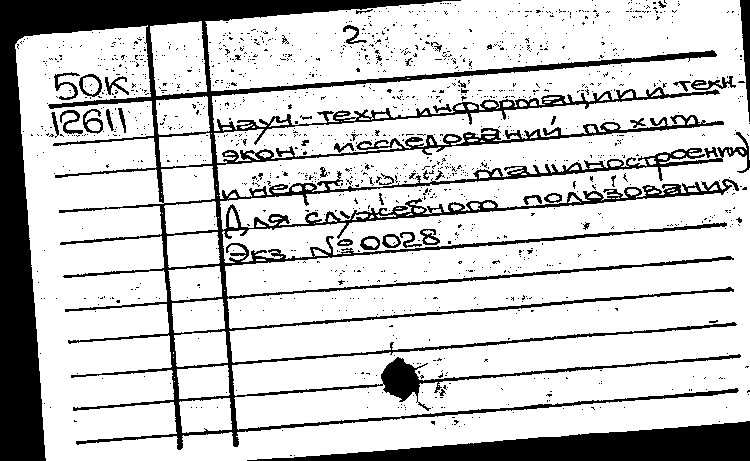 2
50К
12611
науч.-техн. информации и техн.-
экон. исследований по хим.
и нефт. машиностроению)
Для служебного пользования.
Экз. № 0028.